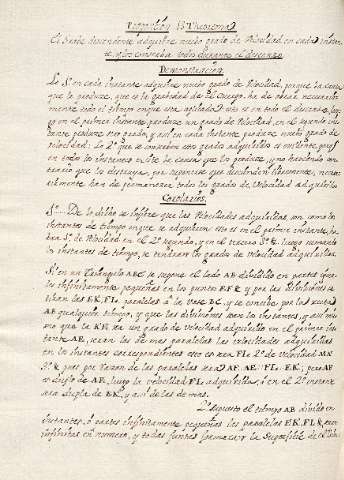 Proposicion 13 Theorema
El Grave descendente adquiere nuebo grado de Velocidad en cada instan-
te, y los conserba todos durante el descenso
Demonstracion
Lo 1º en cada instante adquiere nuebo grado de Velocidad, porque la causa
que la produce, que es la gravedad del Cuerpo, ha de obrar necesaria-
mente todo el tiempo que este aplicada y lo es en todo el descenso, lue-
go en el primer instante produce un grado de Velocidad, en el segundo ins-
tante produce otro grado, y asi en cada instante produce nuebo grado de
Velocidad: Lo 2º que se conserben estos grados adquiridos es evidente, pues
en todos los instantes existe la causa que los produce, y no haviendo con-
trario que los destruya, por suponerse que desciende libremente, neces-
ariamente han de permanecer todos los grados de Velocidad adquiridos
Corolarios
1º De lo dicho se infiere que las Velocidades adquiridas, son como los
instantes de tiempo en que se adquieren esto es en el primer instante,
1º de Velocidad en el 2º segundo, y en el tercero 3º luego sumando
los instantes de tiempo, se tendran los grados de velocidad adquiridos
Si en un Triangulo ABC se supone el lado AB dibidido en partes igua-
les infinitamente pequeñas en los puntos E F & y por las dibisiones se
tiran las EK, FL, paralelas á la vase BC, y se concibe por la recta
AB qualquier tiempo, y que las dibisiones son los instantes, y asi mis-
mo que la KE sea un grado de velocidad adquirido en el primer ins-
tante AE, seran las de mas paralelas las velocidades adquiridas
en los instantes correspondientes esto es FL 2º de velocidad MN
3º & pues por razon de las paralelas sera AF. AE :: FL. EK; pero AF
es duplo de AE, luego la velocidad FL adquirida, en el 2º instante
sera dupla de EK, y asi de las de mas.
2º Supuesto el tiempo AB dibidido en
instantes, ó partes infinitamente pequeñas las paralelas EK, FL & seran
infinitas en numero, y todas juntas formaran la Superficie del